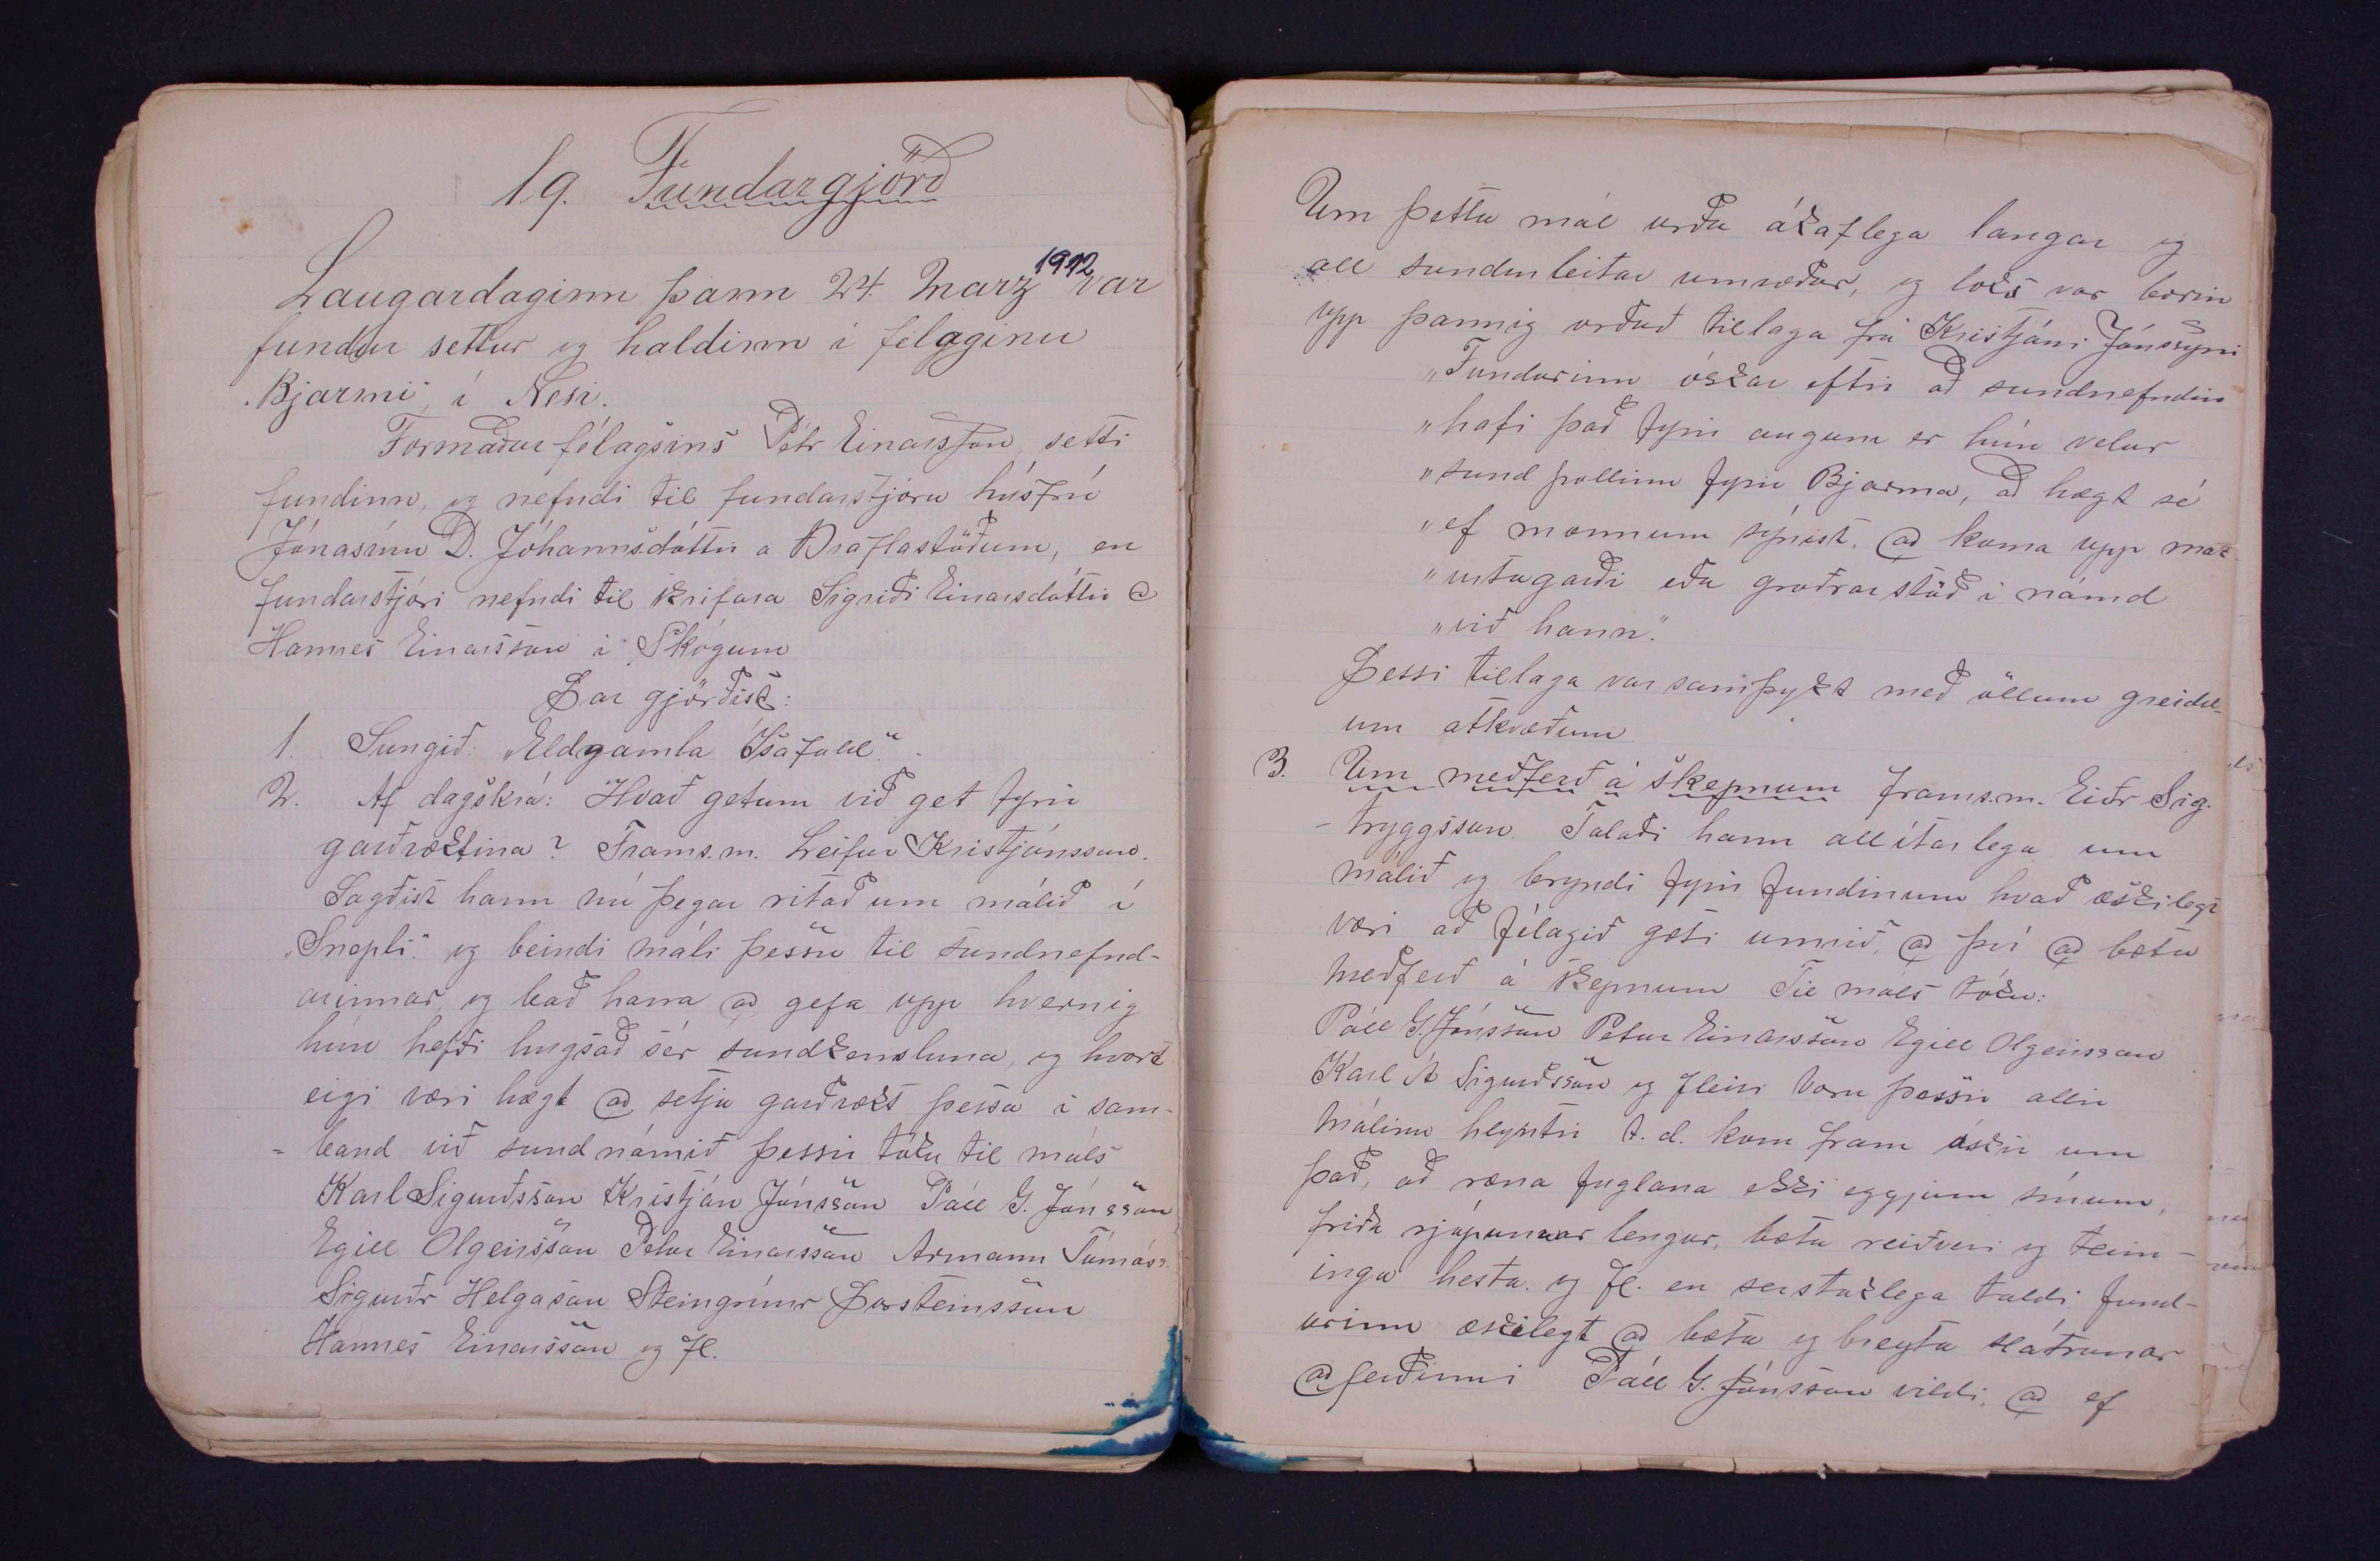 19. Fundargjörð
Laugardaginn þann 24. Marz 1912 var
fundur settur og haldinn í félaginu
„Bjarmi“ í Nesi.
Formaður félagsins Pétr Einarsson, setti
fundinn, og nefndi til fundarstjóra húsfrú
Jónasínu D. Jóhannsdóttir a Draflastöðum, en
fundarstjóri nefndi til skrifara Sigriði Einarsdóttir @
Hannes Einarsson i Skógum
Þar gjörðist:
1. Sungið: „Eldgamla Ísafold“.
2. Af dagskrá: Hvað getum við get fyrir
garðræktina? Frams.m. Leifur Kristjánsson.
Sagðist hann nú þegar ritað um málið í
„Snepli“ og beindi máli þessu til sundnefnd-
arinnar, og bað hana að gefa upp hvernig
hún hefði hugsað sér sundkensluna, og hvort
eigi væri hægt að setja garðrækt þessa i sam-
= band við sundnámið þessir tóku til máls
Karl Sigurðsson Kristján Jónsson Páll G. Jónsson
Egill Olgeirsson Petur Einarsson Armann Tómáss.
Sigurðr Helgason Steingrímr Þorsteinsson
Hannes Einarsson og fl.
Um þetta mál urðu ákaflega langar og
all sundurleitar umræður, og loks var borin
upp þannig orðuð tillaga frá Kristjáni Jónssyni
„Fundurinn óskar eftir að sundnefndin
„hafi það fyrir augum er hún velur
„sund pollinn fyrir Bjarma, að hægt sé
„ef mönnum sýnist, að koma upp mat
„urtagarði eða groðrarstöð i nánd
„við hann“.
Þessi tillaga var samþykt með öllum greidd-
um atkvæðum
3. Um meðferð á skepnum frams.m. Eiðr Sig-
- tryggsson. Talaði hann all ítarlega um
málið og brýndi fyrir fundinum hvað æskilegt
væri að félagið gæti unnið, að því að bæta
meðferð á skepnum Til máls tóku:
Páll G. Jónsson Petur Einarsson Egill Olgeirsson
Karl Á Sigurðsson og fleiri Voru þessir allir
málinu hlyntir t.d. kom fram óskir um
það, að ræna fuglana ekki eggjum sínum,
friða rjúpurnar lengur, bæta reiðveri og tem-
inga hesta og fl. en serstaklega taldi fund-
urinn æskilegt að bæta og breyta slátrunar
aðferðinni Páll G. Jónsson vildi, að ef